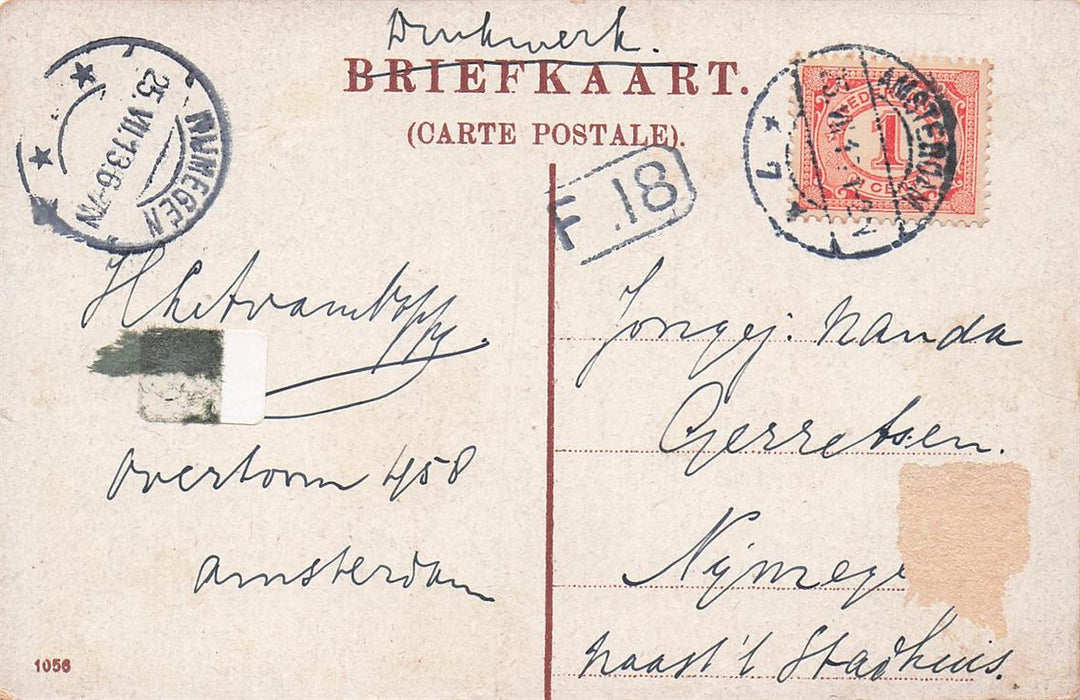 Drukwerk.
BRIEFKAART.
(CARTE POSTALE).
NIJMEGEN
25.VII.13.6-7N
AMSTERDAM
7
NEDERLAND
1
CENT
F.18
Overtoom 458
Amsterdam
Jongej. Nanda
Gerretsen.
Nijmege
naast 't Stadhuis.
1056